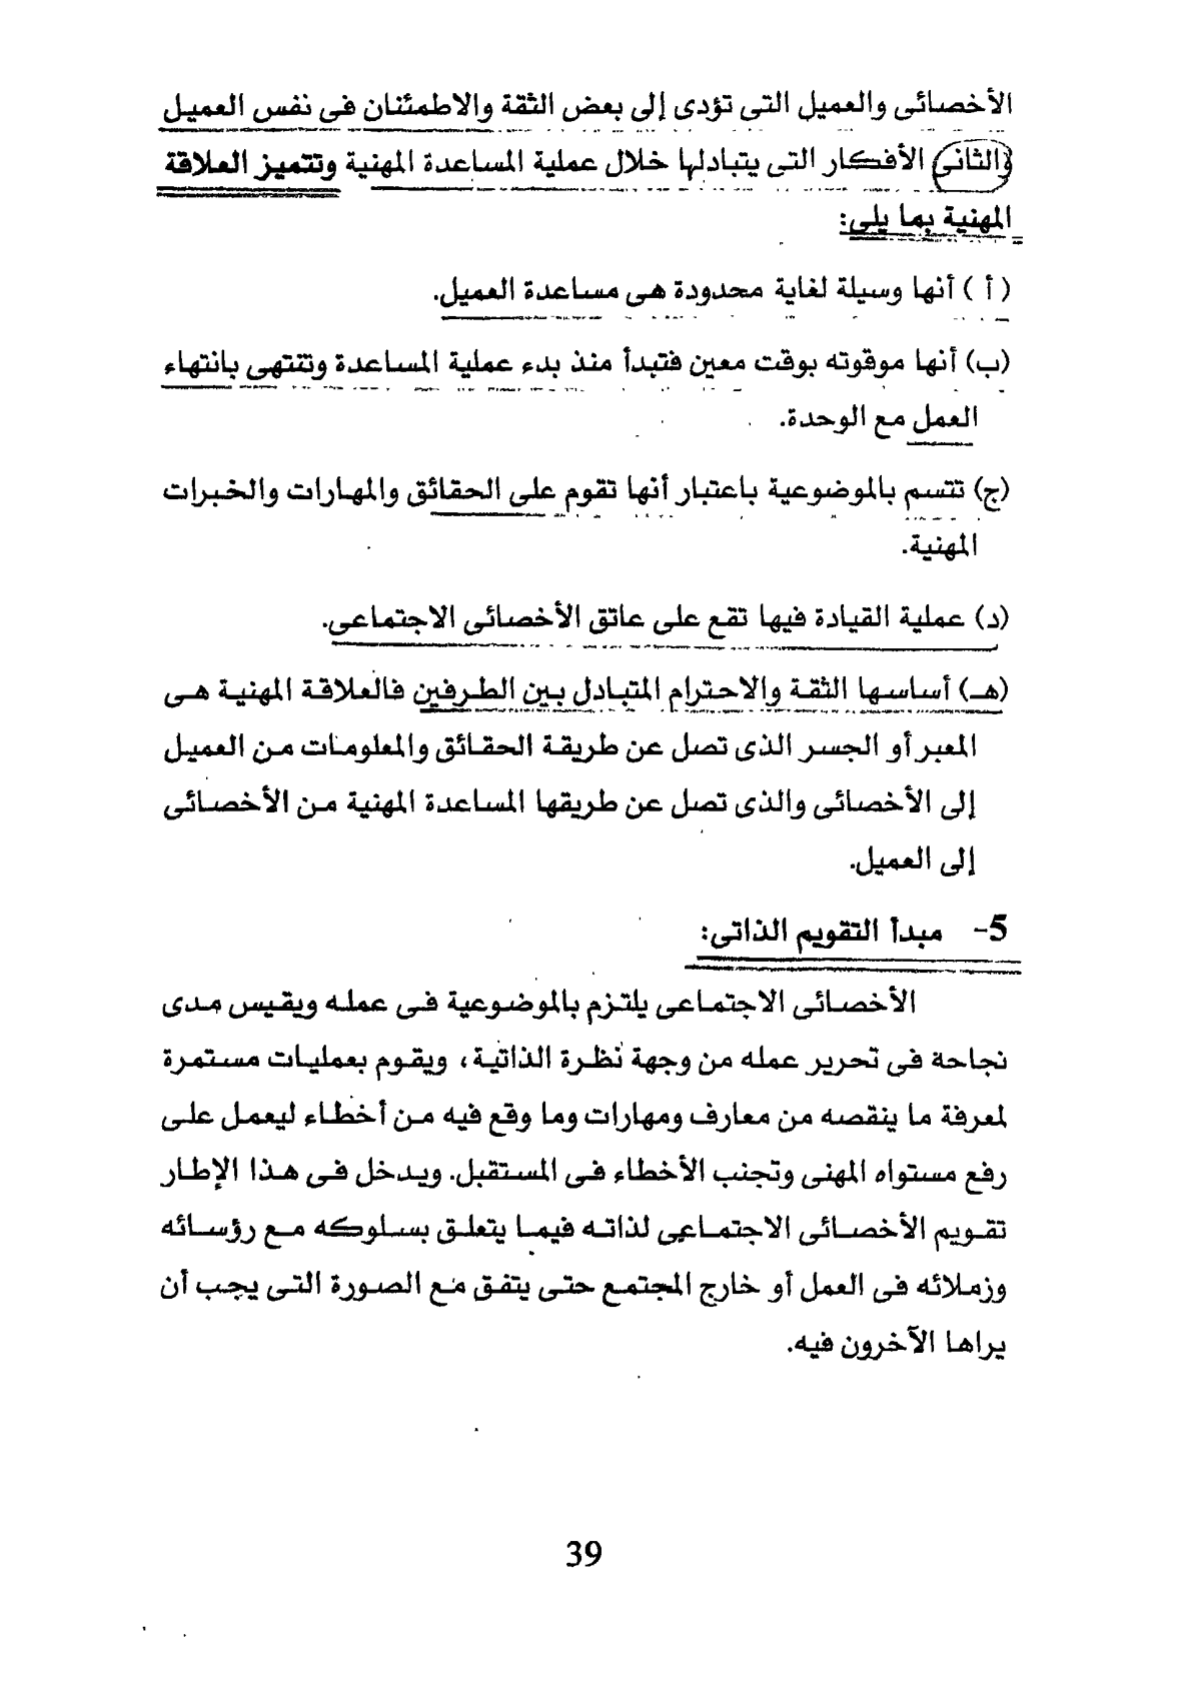 الأخصائى والعميل التى تؤدى إلى بعض الثقة والاطمئنان فى نفس العميل
والثانى الأفكار التى يتبادلها خلال عملية المساعدة المهنية وتتميز العلاقة
المهنية بما يلى:
( أ ) أنها وسيلة لغاية محدودة هى مساعدة العميل.
(ب) أنها موقوته بوقت معين فتبدأ منذ بدء عملية المساعدة وتنتهى بانتهاء
العمل مع الوحدة.
(ج) تتسم بالموضوعية باعتبار أنها تقوم على الحقائق والمهارات والخبرات
المهنية.
(د) عملية القيادة فيها تقع على عاتق الأخصائى الاجتماعى.
(هـ) أساسها الثقة والاحترام المتبادل بين الطرفين فالعلاقة المهنية هى
المعبر أو الجسر الذى تصل عن طريقة الحقائق والمعلومات من العميل
إلى الأخصائى والذى تصل عن طريقها المساعدة المهنية من الأخصائى
إلى العميل.
5- مبدأ التقويم الذاتى:
الأخصائى الاجتماعى يلتزم بالموضوعية فى عمله ويقيس مدى
نجاحة فى تحرير عمله من وجهة نظرة الذاتية، ويقوم بعمليات مستمرة
لمعرفة ما ينقصه من معارف ومهارات وما وقع فيه من أخطاء ليعمل على
رفع مستواه المهنى وتجنب الأخطاء فى المستقبل. ويدخل فى هذا الإطار
تقويم الأخصائى الاجتماعى لذاته فيما يتعلق بسلوكه مع رؤسائه
وزملائه فى العمل أو خارج المجتمع حتى يتفق مع الصورة التى يجب أن
يراها الآخرون فيه.
39